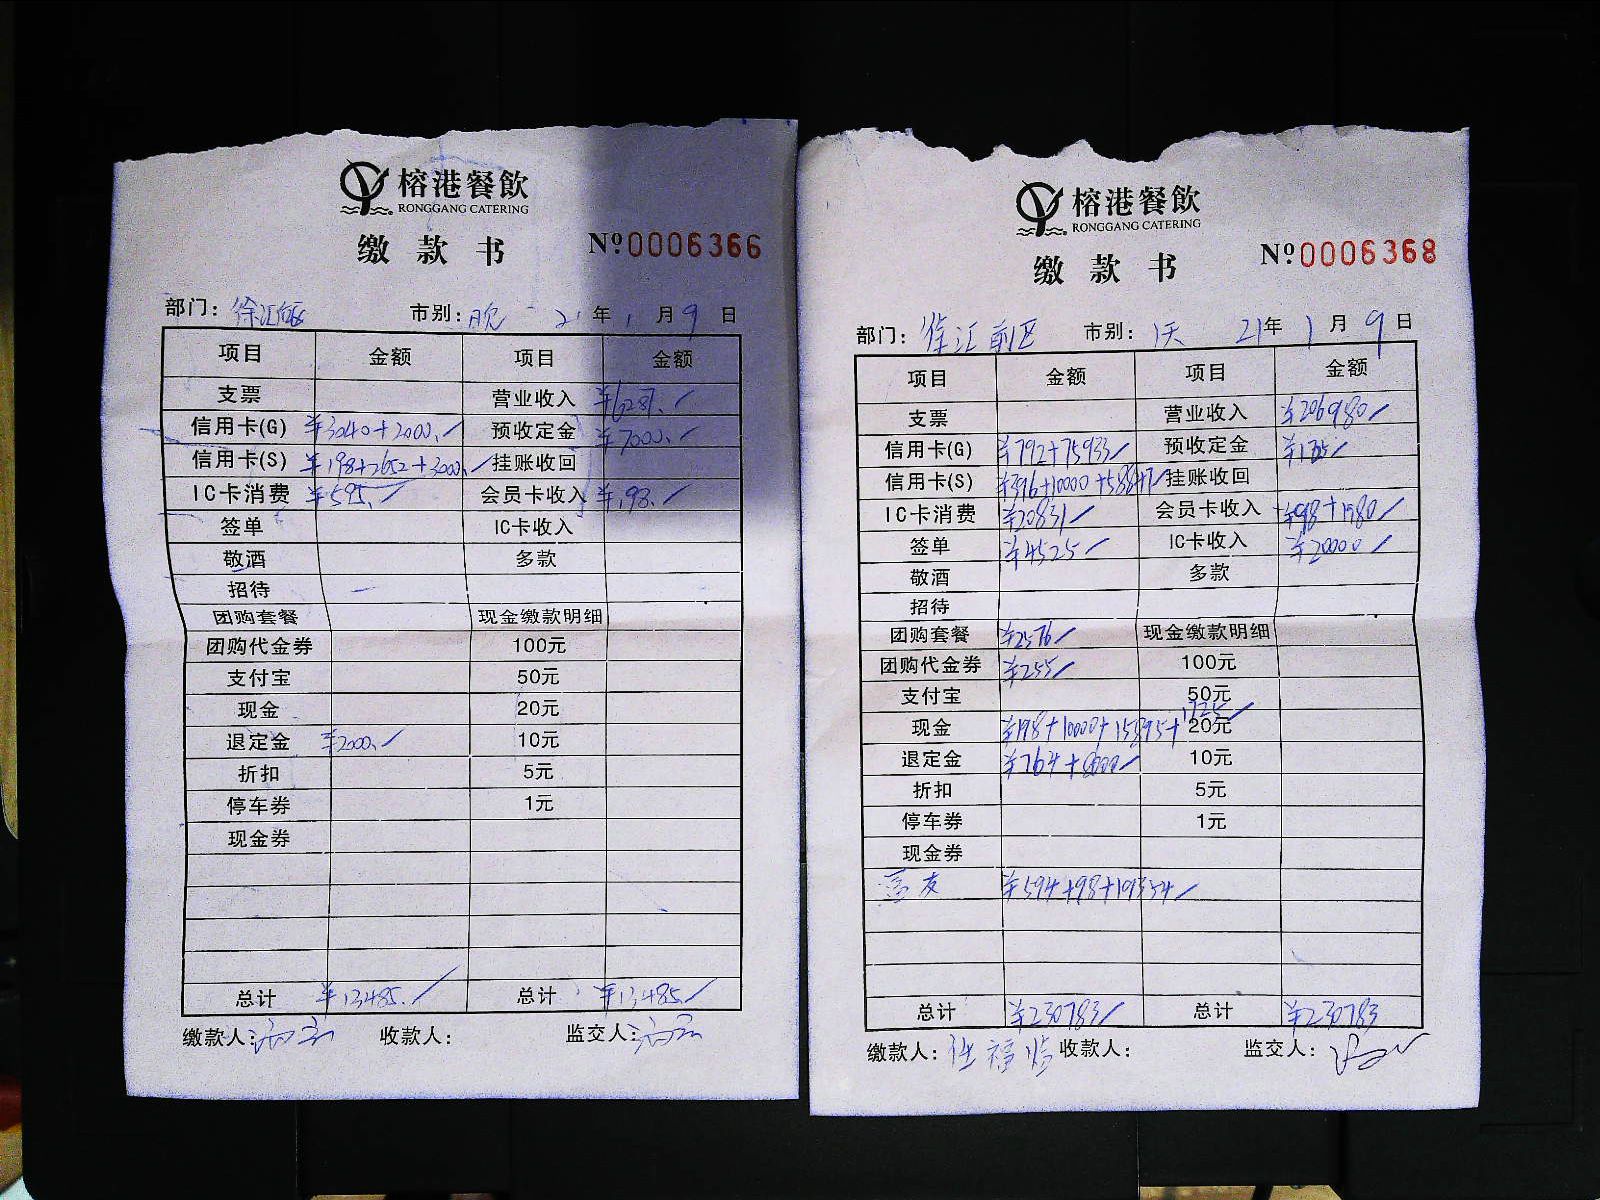 榕港餐飲
RONGGANG CATERING
缴款书 №0006366
部门：徐汇 市别：晚 21年1月9日
项目 金额 项目 金额
支票 营业收入 ¥6287.
信用卡(G) ¥3040+2000. 预收定金 ¥7000.
信用卡(S) ¥198+2652+3000. 挂账收回
IC卡消费 ¥595. 会员卡收入 ¥198.
签单 IC卡收入
敬酒 多款
招待
团购套餐 现金缴款明细
团购代金券 100元
支付宝 50元
现金 20元
退定金 ¥2000. 10元
折扣 5元
停车券 1元
现金券
总计 ¥13485. 总计 ¥13485.
缴款人： 收款人： 监交人：
榕港餐飲
RONGGANG CATERING
缴款书 №0006368
部门：徐汇前区 市别：1天 21年1月9日
项目 金额 项目 金额
支票 营业收入 ¥206980
信用卡(G) ¥792+75933 预收定金
信用卡(S) 挂账收回
IC卡消费 ¥20831 会员卡收入 ¥98+1980
签单 ¥4525 IC卡收入 ¥20000
敬酒 多款
招待
团购套餐 ¥2576 现金缴款明细
团购代金券 ¥255 100元
支付宝 50元
现金 ¥198+10000+15895+1725 20元
退定金 ¥764+8000 10元
折扣 5元
停车券 1元
现金券
¥594+98+109354
总计 ¥230783 总计 ¥230783
缴款人： 收款人： 监交人：